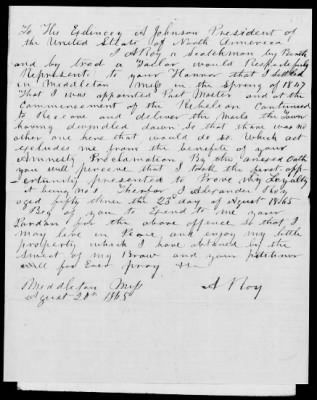 To His Exlencey A Johnson President of
the United States of North America
I A Roy a Scotchman by Birth
and by trad a Tailor would Respectfully
Represent to your Hannor that I Settled
in Middleton Miss in the Spring of 1847
That I was appointed Post Master and at the
Commencement of the Rebelion Continued
to Receave and deliver the Mails the Town
having dwindled down so that thare was no
other one here that would do so. Which act
excludes me from the benefits of your
Amnesty Proclamation, By the anexed Oath
you will percieve that I took the first opp
ortunity presented to Prove my Loyalty
it being not Therfor I Alexander Roy
aged fifty three the 23d day of Agust 1865
Beg of you to Extend to me your
Pardan for the above offence So that I
may live in Peace and enjoy my little
property which I have obtained by the
Sweat of my Brow and your petitioner
will for Ever pray &c
Middleton Miss
Agust 21st 1865
A Roy